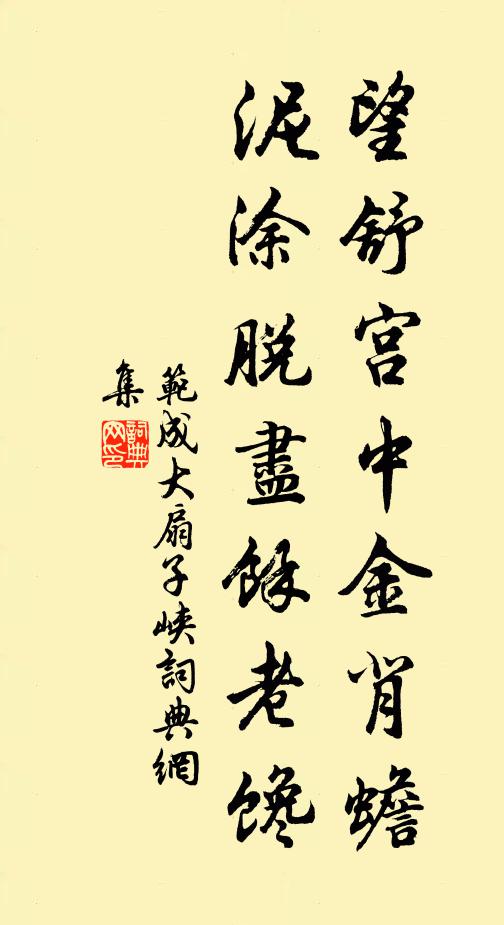 望舒宫中金背蟾
泥涂脱盡餘老馋
範成大扇子峡詞典網
集
詞典網印